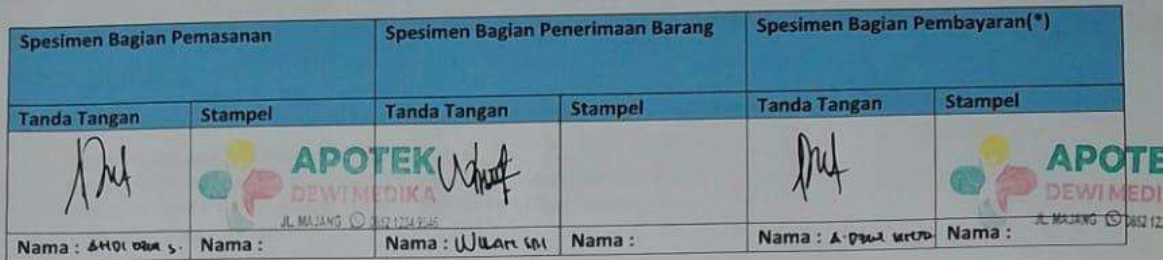 Spesimen Bagian Pemasanan
Spesimen Bagian Penerimaan Barang
Spesimen Bagian Pembayaran(*)
Tanda Tangan
Stampel
Tanda Tangan
Stampel
Tanda Tangan
Stampel
APOTEK
DEWI MEDIKA
JL. MAJANG
APOTE
DEWI MEDI
JL. MAJANG
Nama :
Nama :
Nama : WULAN
Nama :
Nama :
Nama :